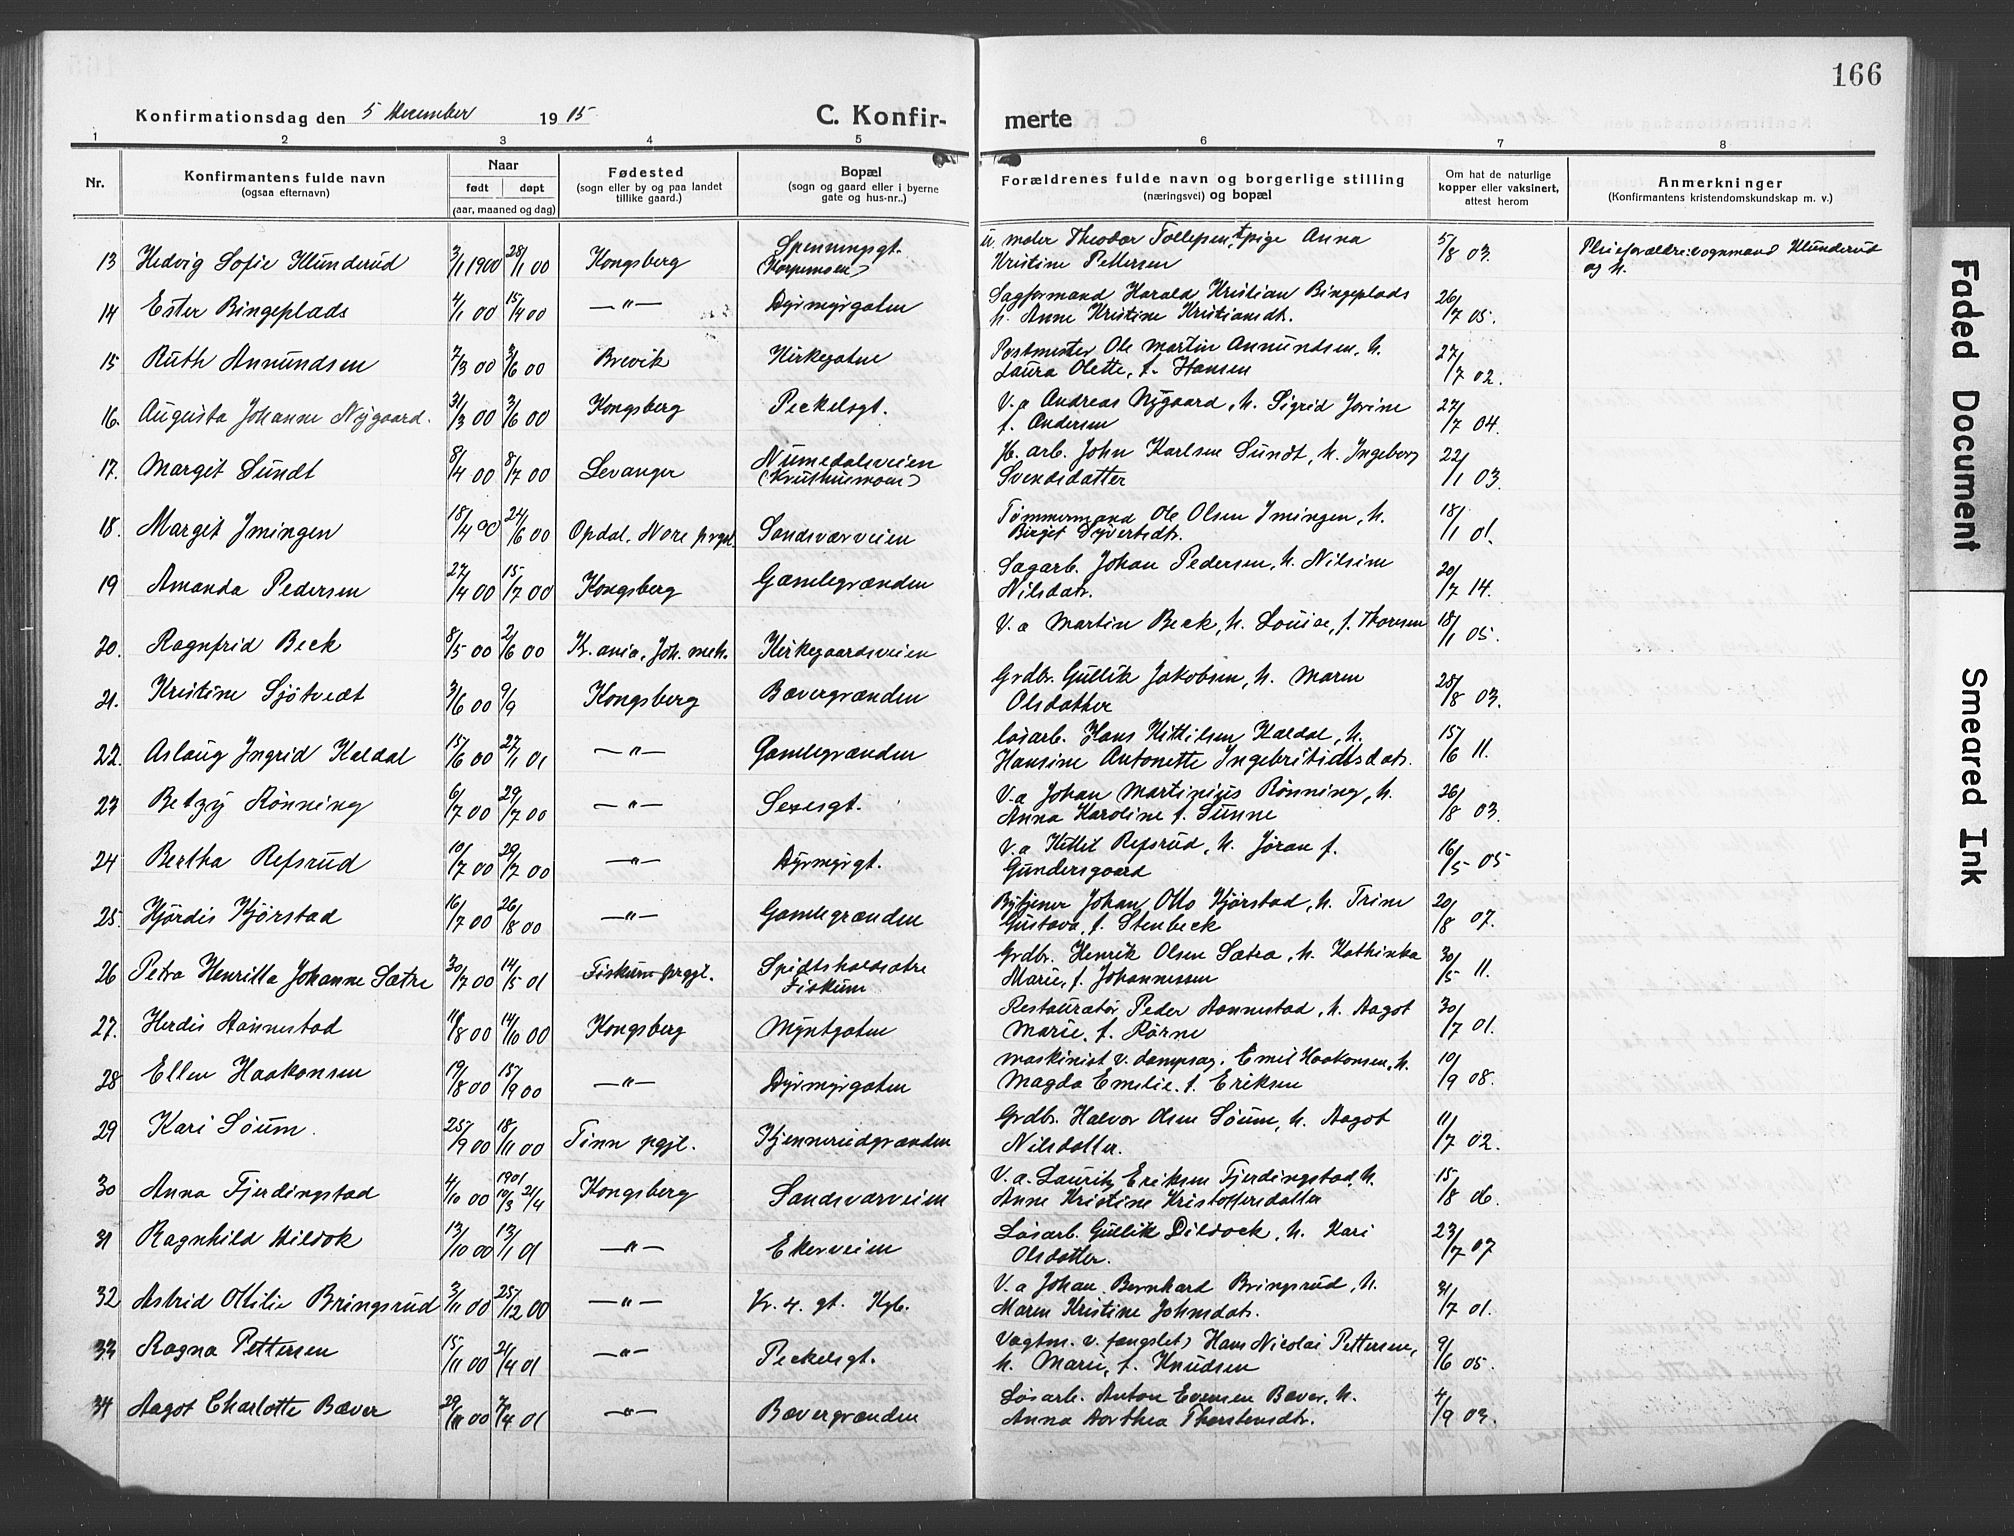 166
Konfirmationsdag den 5 December 1915. C. Konfir- merte
1 2 3 4 5 6 7 8
Nr. Konfirmantens fulde navn (ogsaa efternavn) Naar født døpt (aar, maaned og dag) Fødested (sogn eller by og paa landet tillike gaard.) Bopæl (sogn og gaard eller i byerne gate og hus-nr..) Forældrenes fulde navn og borgerlige stilling (næringsvei) og bopæl Om hat de naturlige kopper eller vaksinert, attest herom Anmerkninger (Konfirmantens kristendomskundskap m. v.)
13 Hedvig Sofie Klunderud 3/1 1900 28/1 00 Kongsberg Spenningsgt. u. moder Theodor Tollefsen, pige Anna 5/8 03. Pleieforældre: vognmand Klunderud
(Korpemoen) Kristine Pettersen og h.
14 Ester Bingeplads 4/1 00 15/4 00 —"— Dyrmyrgaten Sagformand Harald Kristian Bingeplads 26/7 05.
h. Anne Kristine Kristiansdt.
15 Ruth Annundsen 7/3 00 3/6 00 Brevik Kirkegaten Postmester Ole Martin Annundsen, h. 27/7 02.
Laura Olette, f. Hansen
16. Augusta Johanne Nygaard. 31/3 00 3/6 00 Kongsberg Peckelsgt. V.a Andreas Nygaard, h. Sigrid Jorine 27/7 04.
f. Andersen
17. Margit Sundt 8/4 00 8/7 00 Levanger Numedalsveien Jb. arb. John Karlsen Sundt, h. Ingeborg 22/1 03.
(Kruthusmoen) Svendsdatter
18. Margit Imingen 18/4 00 24/6 00 Opdal, Nore prgjl. Sandsværveien Tømmermand Ole Olsen Imingen, h. 18/1 01.
Birgit Syvertsdtr.
19 Amanda Pedersen 27/4 00 15/7 00 Kongsberg Gamlegrænden Sagarb. Johan Pedersen, h. Nilsine 20/7 14.
Nilsdatr.
20. Ragnfrid Beck 8/5 00 2/6 00 Kr.ania, Joh. meh. Kirkegaardsveien V.a Martin Beck, h. Louise, f. Thoresen 18/1 05.
21. Kristine Sjøtvedt 3/6 00 9/9 Kongsberg Bævergrænden Grdbr. Gullik Jakobsen, h. Maren 28/8 03.
Olsdatter
22. Aslaug Ingrid Kaldal 15/6 00 27/1 01 —"— Gamlegrænden Løsarb. Hans Kittilsen Kaldal, h. 15/6 11.
Hansine Antonette Ingebrigtsdatr.
23 Betzy Rønning 6/7 00 29/7 00 —"— Sexesgt. V.a Johan Martinius Rønning, h. 26/8 03.
Anna Karoline f. Sunne
24 Bertha Refsrud 10/7 00 29/7 00 —"— Dyrmyrgt. V.a Kittil Refsrud, h. Jøran f. 16/5 05
Gundersgaard
25. Hjørdis Kjørstad 16/7 00 26/8 00 —"— Gamlegrænden Bytjener Johan Otto Kjørstad, h. Trine 20/8 07.
Gustava, f. Stenbeck
26 Petra Henritta Johanne Sætre 30/7 00 14/5 01 Fiskum prgjl. Spidtsholdsætre Grdbr. Henrik Olsen Sætra, h. Kathinka 30/5 11.
Fiskum Marie, f. Johannessen
27. Herdis Aannestad 11/8 00 14/10 00 Kongsberg Myntgaten Restauratør Peder Aannestad, h. Aagot 30/7 01.
Marie, f. Rørne
28 Ellen Haakonsen 19/8 00 15/9 00 —"— Dyrmyrgaten Maskinist v. dampsag, Emil Haakonsen, h. 10/9 08.
Magda Emelie, f. Eriksen
29 Kari Søum. 25/9 00 18/11 00 Tinn pgjl. Kjennerudgrænden Grdbr. Halvor Olsen Søum, h. Aagot 11/7 02.
Nilsdatter.
30 Anna Fjerdingstad 4/10 00 1901 10/3 21/4 Kongsberg Sandsværveien V.a. Lauritz Eriksen Fjerdingstad, h. 15/8 06.
Anne Kristine Kristoffersdatter
31 Ragnhild Dildok 13/10 00 13/1 01 —"— Ekerveien Løsarb. Gullik Dildock, h. Kari 23/7 07
Olsdatter.
32 Astrid Ottilie Bringsrud 3/11 00 25/12 00 —"— Kr. 4. gt. Kgb. V.a Johan Bernhard Bringsrud, h. 31/7 01.
Maren Kristine Johnsdatr.
33 Ragna Pettersen 15/11 00 21/4 01 —"— Peckelsgt. Vagtm. v. fængslet, Hans Nicolai Pettersen, 9/6 05.
h. Marie, f. Knudsen
34 Aagot Charlotte Bæver 29/11 00 7/4 01 —"— Bævergrænden Løsarb. Anton Evensen Bæver, h. 4/9 03.
Anna Dorthea Thorstensdtr.
Faded Document
Smeared Ink